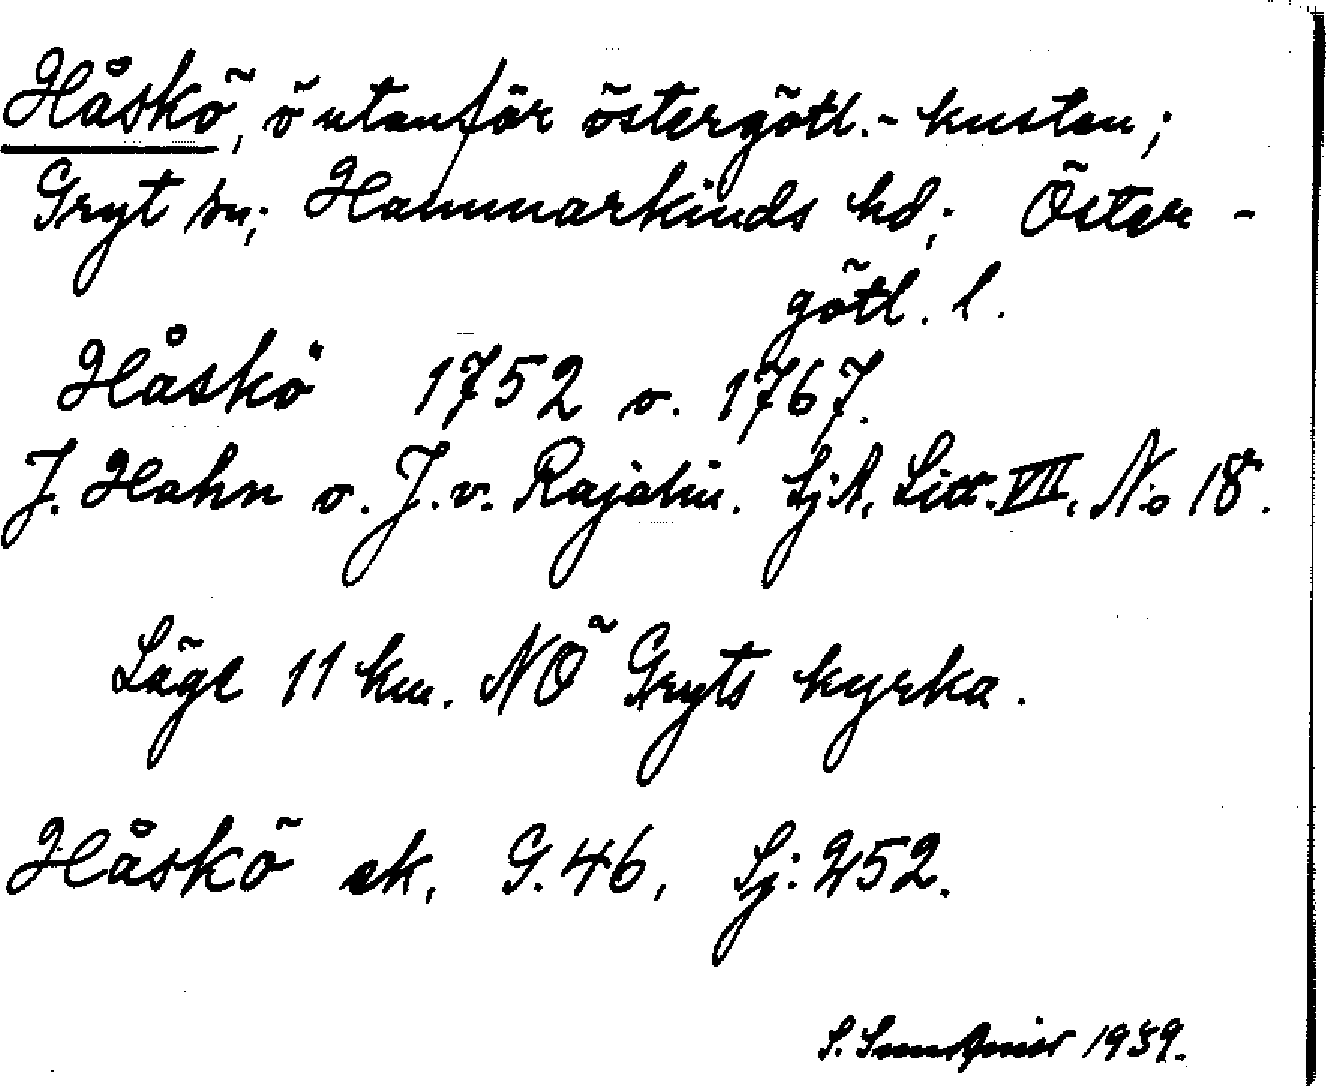 Håskö, ö utanför östergötl.-kusten;
Gryt sn; Hammarkinds hd; Öster-
götl. l.
Håskö 1752 o. 1767.
J. Hahn o. J. v. Rajalin. SjA, Litt. VII, No 18.
Läge 11 km. NÖ Gryts kyrka.
Håskö ek, G. 46, Sj: 252.
S. 1939.